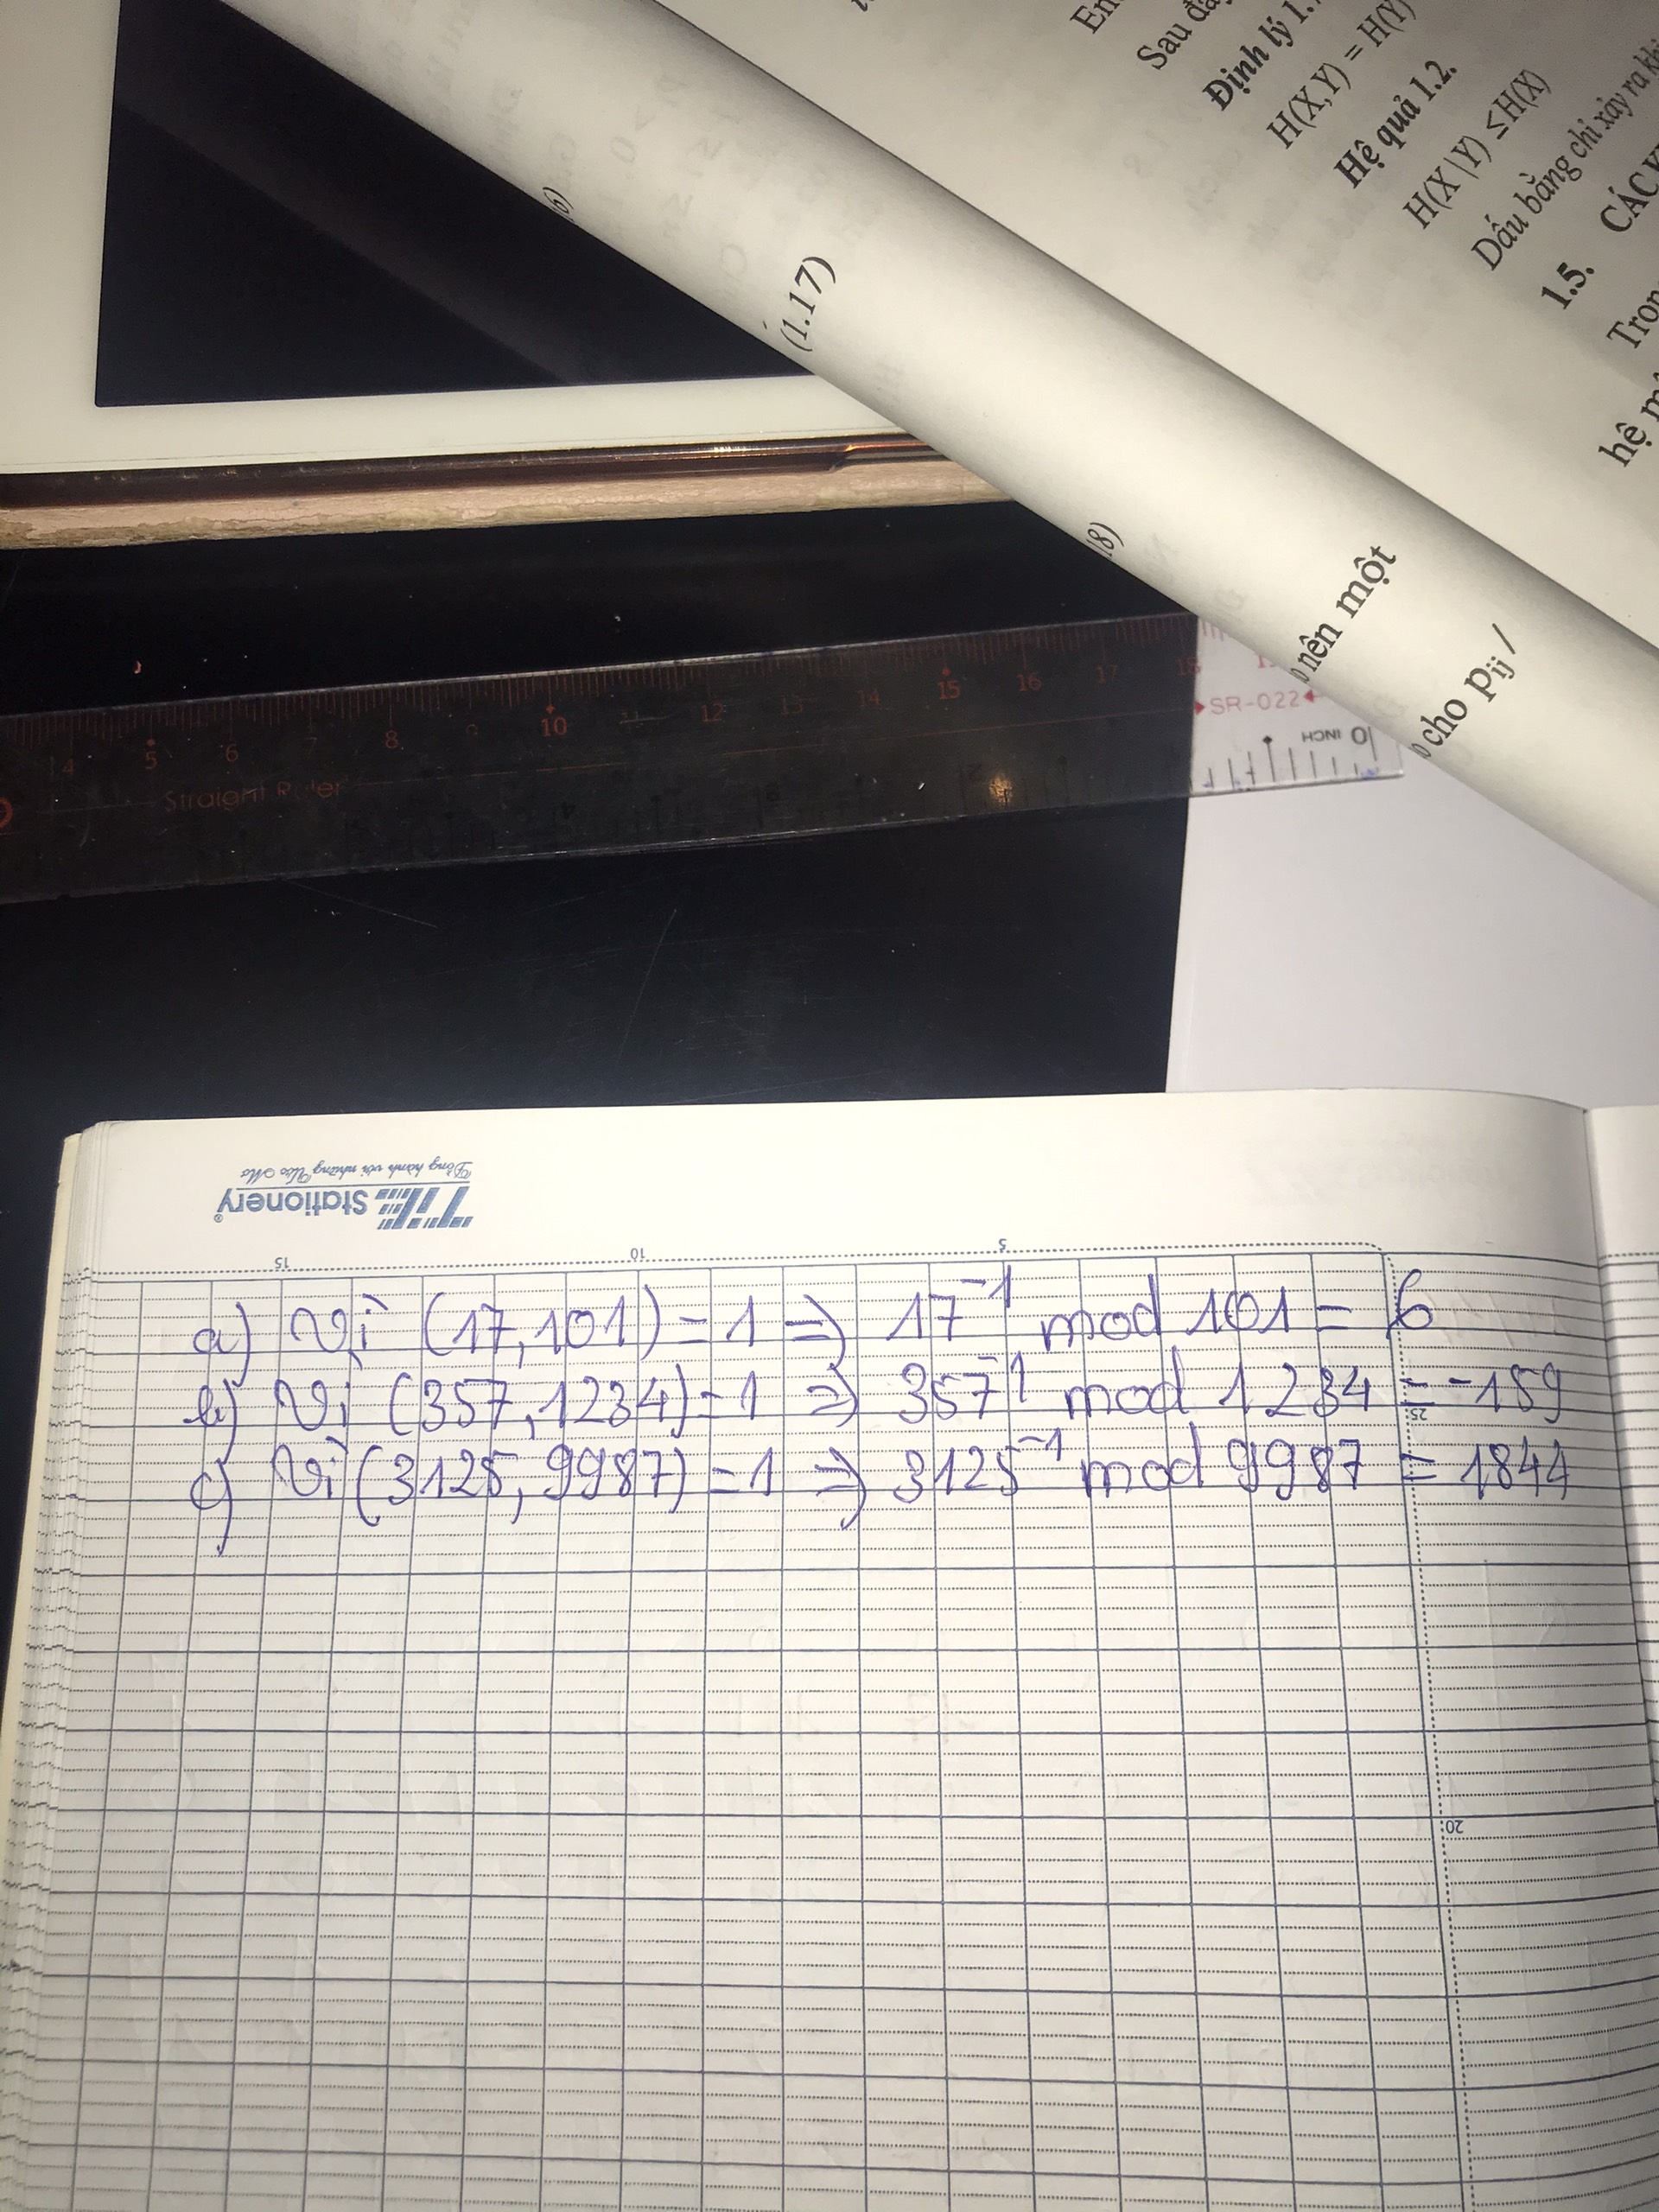 En
Sau đây
Định lý 1.
H(X,Y) = H(Y)
Hệ quả 1.2.
H(X|Y) ≤ H(X)
Dấu bằng chỉ xảy ra khi
1.5. CÁC
Tron
hệ m
(1.17)
nên một
cho Pij /
4 5 6 7 8 9 10 11 12 13 14 15 16 17 18
Straight Ruler
SR-022
0 INCH
TiZ Stationery
Đồng hành với những Ước Mơ
15 10 5
a) Vì (17,101) = 1 => 17⁻¹ mod 101 = 6
b) Vì (357,1234) = 1 => 357⁻¹ mod 1234 = -159
25
c) Vì (3125, 9987) = 1 => 3125⁻¹ mod 9987 = 1844
20